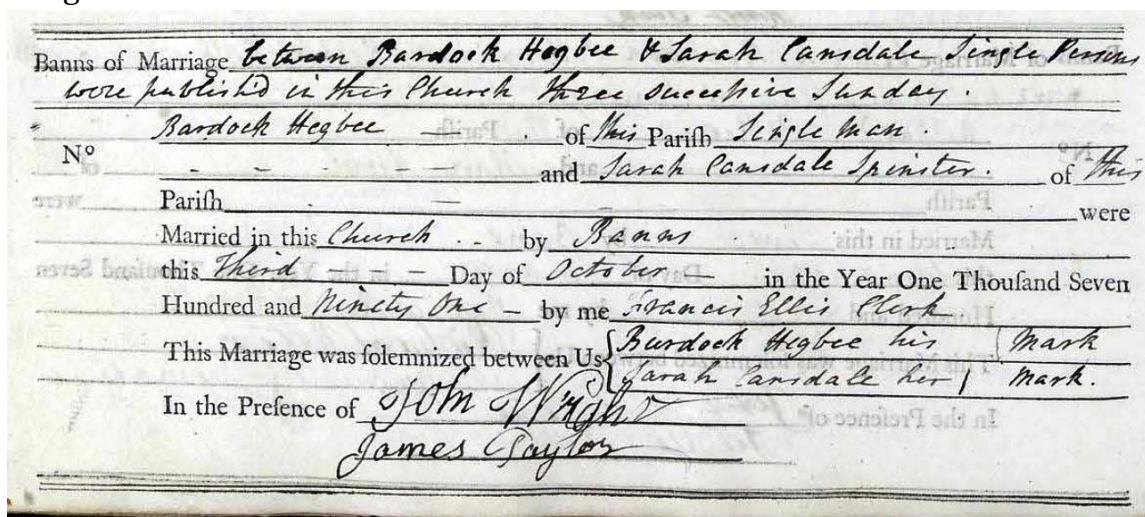 Banns of Marriage between Bardock Hegbee & Sarah Cansdale Single Persons
were publish'd in this Church three succeſsive Sunday.
Bardock Hegbee of this Pariſh Single Man.
Nº
and Sarah Cansdale Spinster. of this
Pariſh were
Married in this Church by Banns
this Third Day of October in the Year One Thouſand Seven
Hundred and Ninety One by me Francis Ellis Clerk
This Marriage was ſolemnized between Us Burdock Hegbee his | Mark
Sarah Cansdale her | Mark.
In the Preſence of John Wright
James Taylor